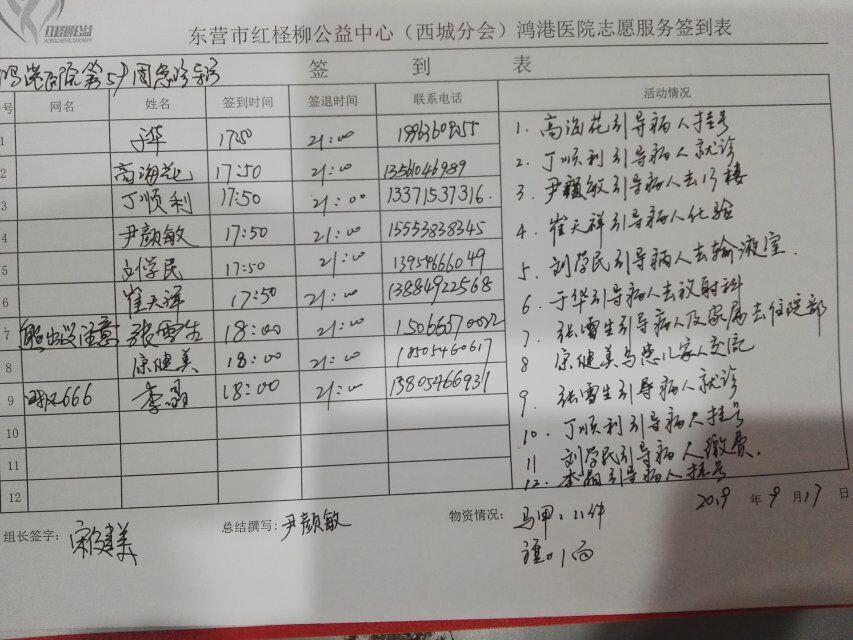 红柽柳公益
东营市红柽柳公益中心（西城分会）鸿港医院志愿服务签到表
签 到 表
鸿港医院第57周
号 网名 姓名 签到时间 签退时间 联系电话 活动情况
1 于华 17:50 21:00
2 高海花 17:50 21:00 13561046989
3 丁顺利 17:50 21:00 13371537316.
4 尹颜敏 17:50 21:00 15553838345
5 刘学民 17:50 21:00 13954666049
6 崔天祥 17:50 21:00 13884922568
7 熊出没注意 张雪生 18:00 21:00
8 宗健美 18:00 21:00 18505460617
9 666 李晶 18:00 21:00 13805466931
10
11
12
1. 高海花引导病人挂号
2. 丁顺利引导病人就诊
3. 尹颜敏引导病人去13楼
4. 崔天祥引导病人化验
5. 刘学民引导病人去输液室.
6. 于华引导病人去放射科
7. 张雪生引导病人及家属去住院部
8 宗健美与患儿家人交流
9. 张雪生引导病人就诊
10. 丁顺利引导病人挂号
11 刘学民引导病人缴费.
12. 李晶引导病人挂号
2019 年 9 月 17 日
组长签字： 总结撰写: 尹颜敏 物资情况： 马甲：11件
1面